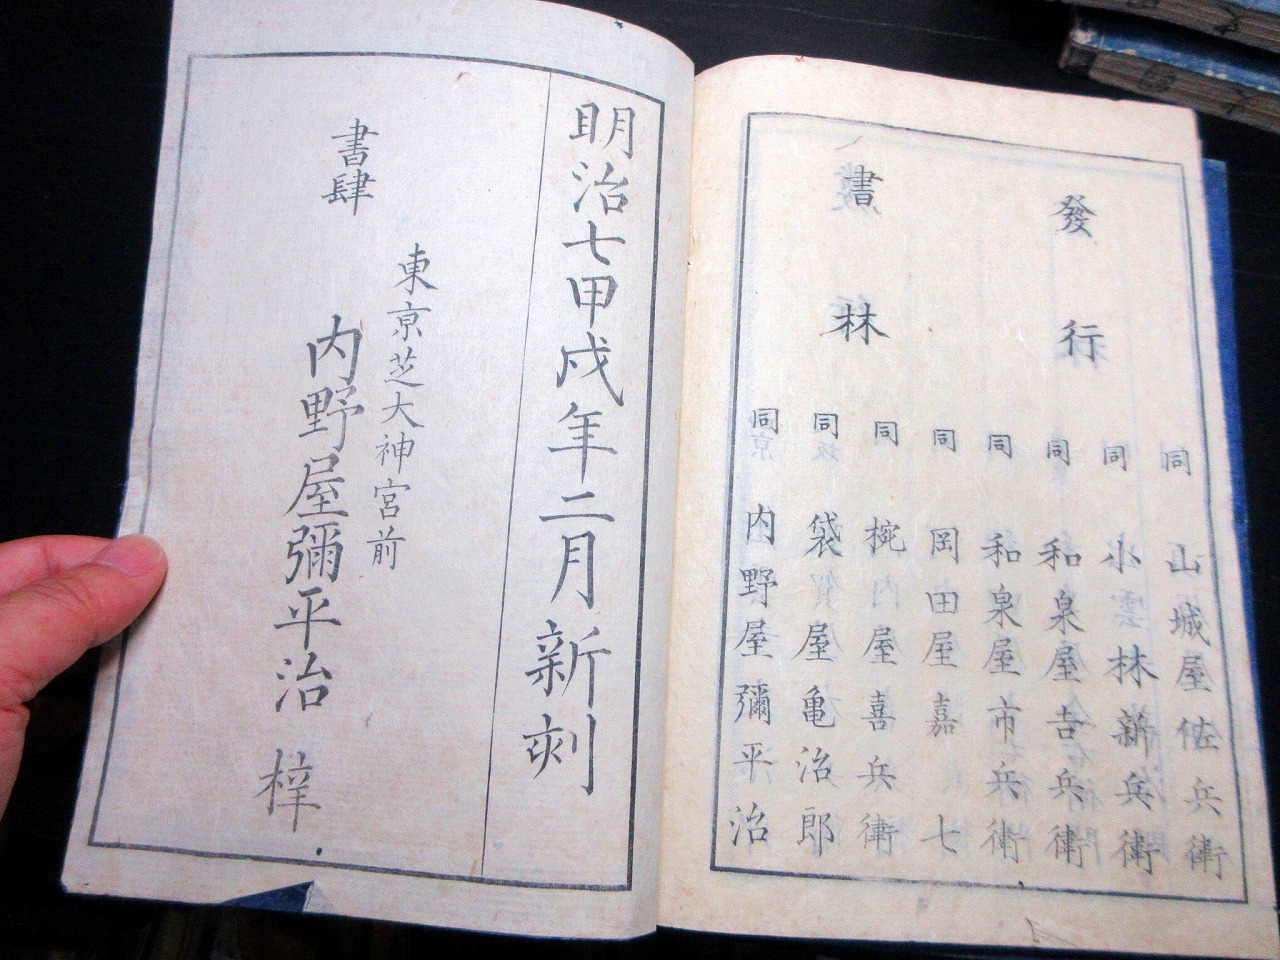 發行
書林
同 山城屋佐兵衛
同 小林新兵衛
同 和泉屋吉兵衛
同 和泉屋市兵衛
同 岡田屋嘉七
同 椀内屋喜兵衛
同 袋屋亀治郎
同 内野屋彌平治
明治七甲戌年二月新刻
東京芝大神宮前
書肆 内野屋彌平治 梓